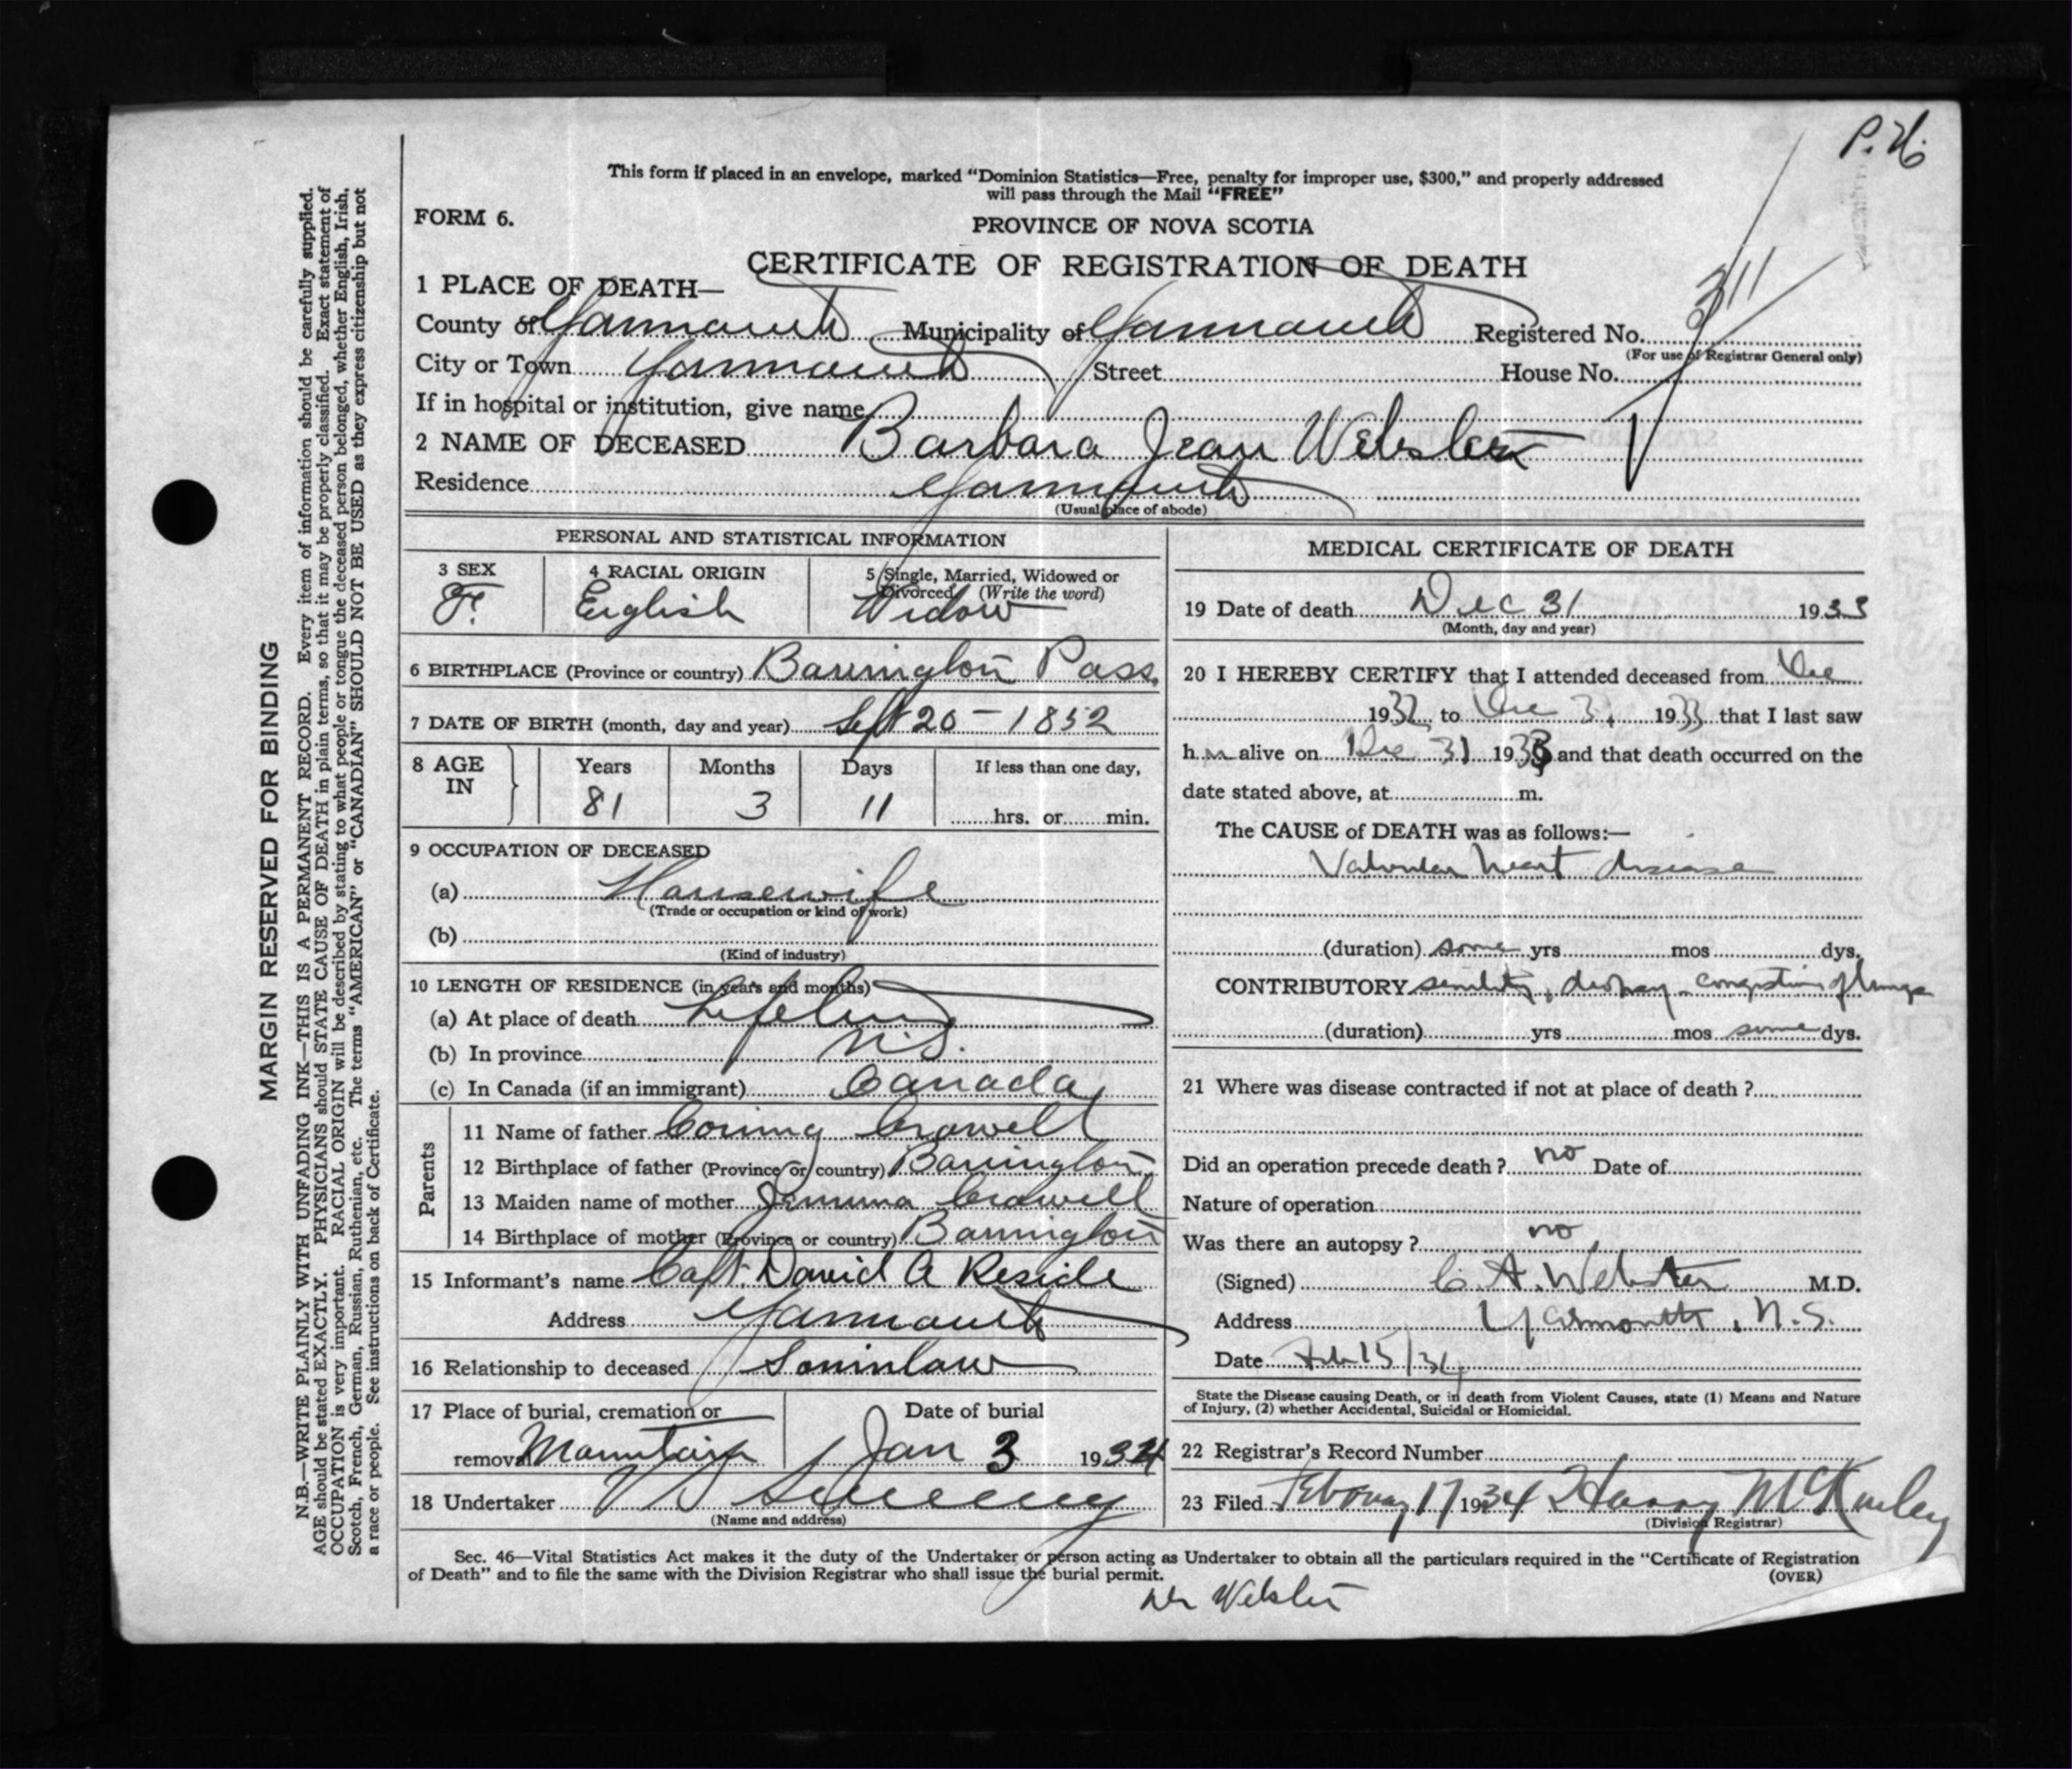 P.H.
This form if placed in an envelope, marked "Dominion Statistics—Free, penalty for improper use, $300," and properly addressed
will pass through the Mail "FREE"
FORM 6.
PROVINCE OF NOVA SCOTIA
CERTIFICATE OF REGISTRATION OF DEATH
1 PLACE OF DEATH—
311
County of Yarmouth Municipality of Yarmouth Registered No.
(For use of Registrar General only)
City or Town Yarmouth Street House No.
If in hospital or institution, give name
2 NAME OF DECEASED Barbara Jean Webster
Residence Yarmouth
(Usual place of abode)
PERSONAL AND STATISTICAL INFORMATION
3 SEX 4 RACIAL ORIGIN 5 Single, Married, Widowed or
Divorced (Write the word)
F. English Widow
6 BIRTHPLACE (Province or country) Barrington Pass.
7 DATE OF BIRTH (month, day and year) Sept 20 – 1852
8 AGE IN Years Months Days If less than one day,
81 3 11 hrs. or min.
9 OCCUPATION OF DECEASED
(a) Housewife
(Trade or occupation or kind of work)
(b)
(Kind of industry)
10 LENGTH OF RESIDENCE (in years and months)
(a) At place of death Lifetime
(b) In province N.S.
(c) In Canada (if an immigrant) Canada
Parents
11 Name of father Corning Crowell
12 Birthplace of father (Province or country) Barrington
13 Maiden name of mother Jemima Crowell
14 Birthplace of mother (Province or country) Barrington
15 Informant's name Capt. David A Reside
Address Yarmouth
16 Relationship to deceased Soninlaw
17 Place of burial, cremation or Date of burial
removal Mountain Jan 3 1934
18 Undertaker V S Sweeny
(Name and address)
MEDICAL CERTIFICATE OF DEATH
19 Date of death Dec 31 1933
(Month, day and year)
20 I HEREBY CERTIFY that I attended deceased from Dec
1932 to Dec 31 1933 that I last saw
h er alive on Dec 31 1933 and that death occurred on the
date stated above, at m.
The CAUSE of DEATH was as follows:—
Valvular heart disease
(duration) some yrs mos dys.
CONTRIBUTORY senility, dropsy – congestion of lungs
(duration) yrs mos some dys.
21 Where was disease contracted if not at place of death ?
Did an operation precede death ? no Date of
Nature of operation
Was there an autopsy ? no
(Signed) C. A. Webster M.D.
Address Yarmouth, N.S.
Date Feb 15/34
State the Disease causing Death, or in death from Violent Causes, state (1) Means and Nature
of Injury, (2) whether Accidental, Suicidal or Homicidal.
22 Registrar's Record Number
23 Filed February 17 1934 Harry McKinley
(Division Registrar)
Sec. 46—Vital Statistics Act makes it the duty of the Undertaker or person acting as Undertaker to obtain all the particulars required in the "Certificate of Registration
of Death" and to file the same with the Division Registrar who shall issue the burial permit.
(OVER)
Dr Webster
MARGIN RESERVED FOR BINDING
N.B.—WRITE PLAINLY WITH UNFADING INK—THIS IS A PERMANENT RECORD. Every item of information should be carefully supplied.
AGE should be stated EXACTLY. PHYSICIANS should STATE CAUSE OF DEATH in plain terms, so that it may be properly classified. Exact statement of
OCCUPATION is very important. RACIAL ORIGIN will be described by stating to what people or tongue the deceased person belonged, whether English, Irish,
Scotch, French, German, Russian, Ruthenian, etc. The terms "AMERICAN" or "CANADIAN" SHOULD NOT BE USED as they express citizenship but not
a race or people. See instructions on back of Certificate.